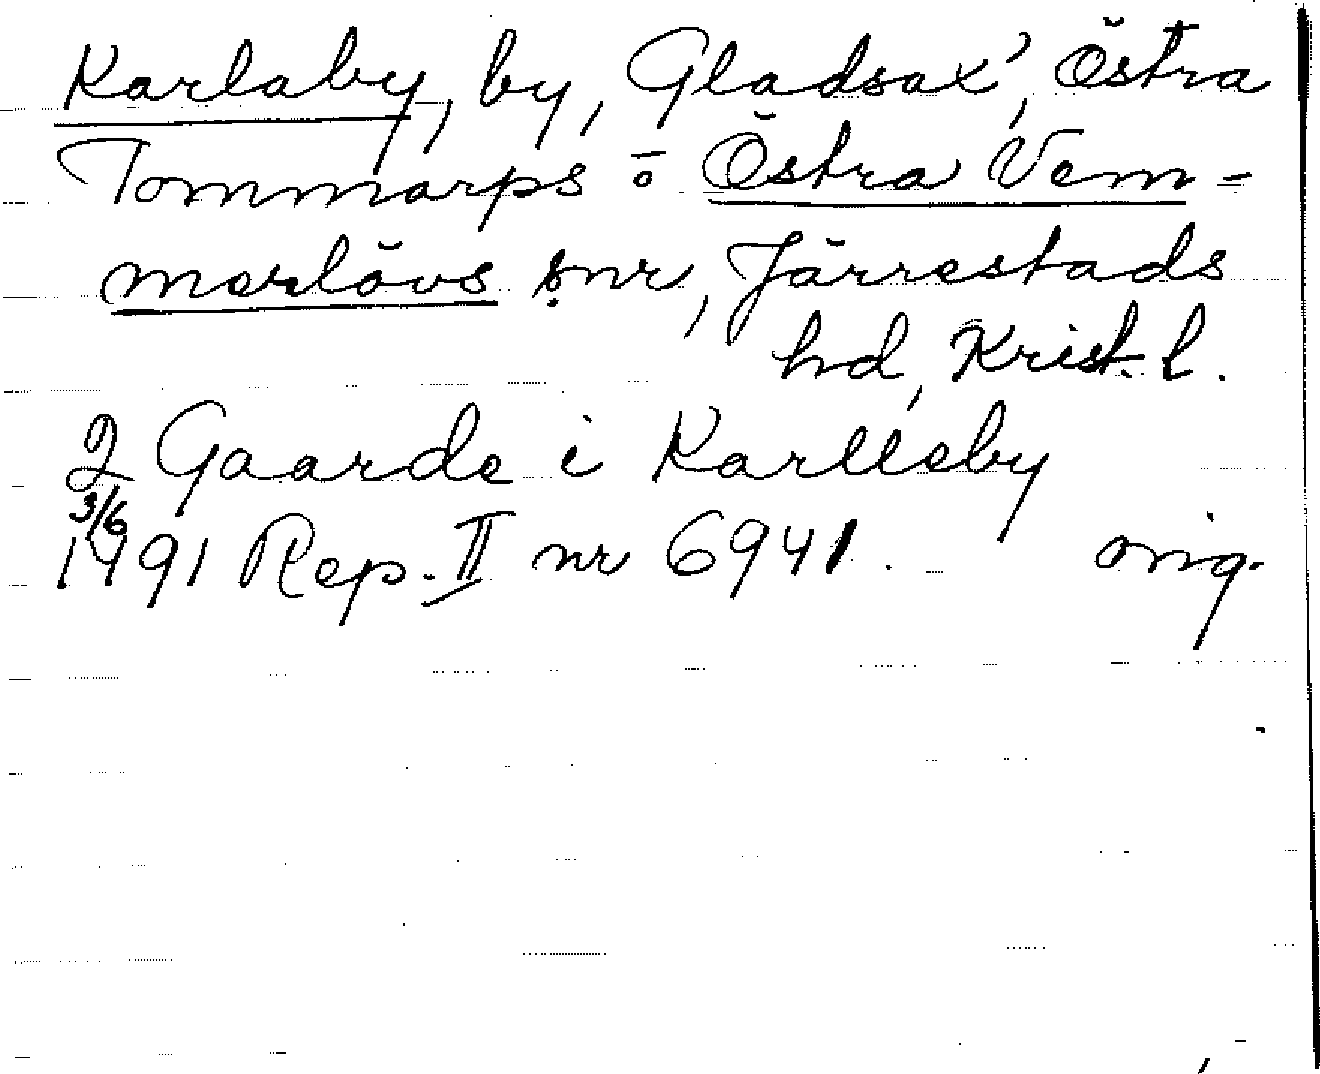 Karlaby, by, Gladsax', Östra
Tommarps o Östra Vem-
merlövs snr, Järrestads
hd, Krist. l.
2 Gaarde i Karlleby
3/6
1491 Rep. II nr 6941. orig.